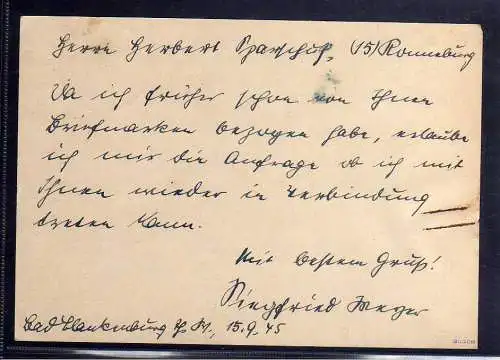 Herrn Herbert Sparschuh, (15) Ronneburg
Da ich früher schon von Ihnen
Briefmarken bezogen habe, erlaube
ich mir die Anfrage ob ich mit
Ihnen wieder in Verbindung
treten kann.
Mit bestem Gruß!
Siegfried Meyer
Bad Blankenburg 15.9.45